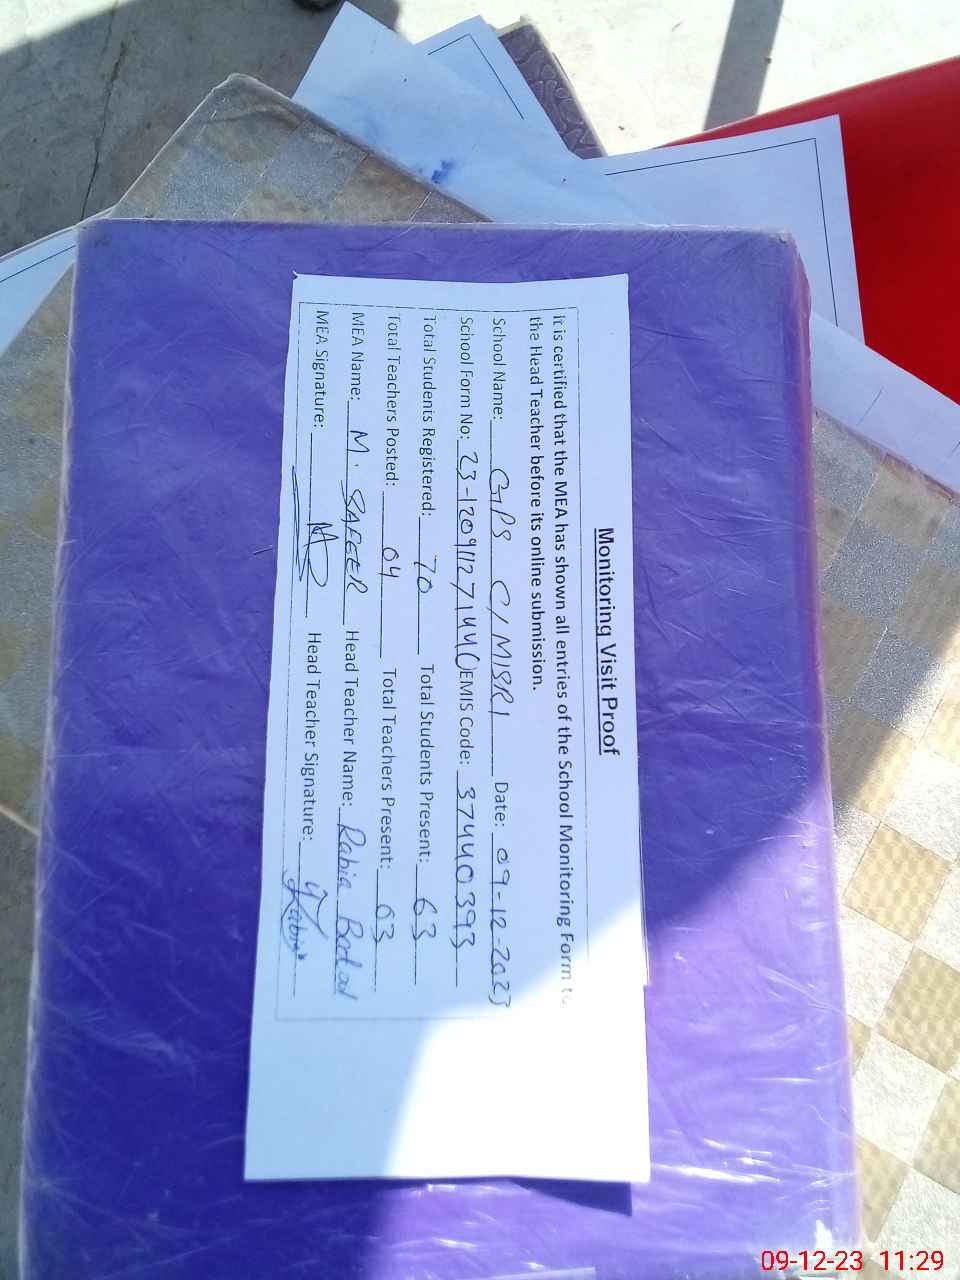 Monitoring Visit Proof
It is certified that the MEA has shown all entries of the School Monitoring Form to
the Head Teacher before its online submission.
School Name: GPS C/MISRI Date: 09-12-2023
School Form No: 23-120911271440 EMIS Code: 37440393
Total Students Registered: 70 Total Students Present: 63
Total Teachers Posted: 04 Total Teachers Present: 03
MEA Name: M. SAFEER Head Teacher Name: Rabia
MEA Signature: Head Teacher Signature: Rabia
09-12-23 11:29